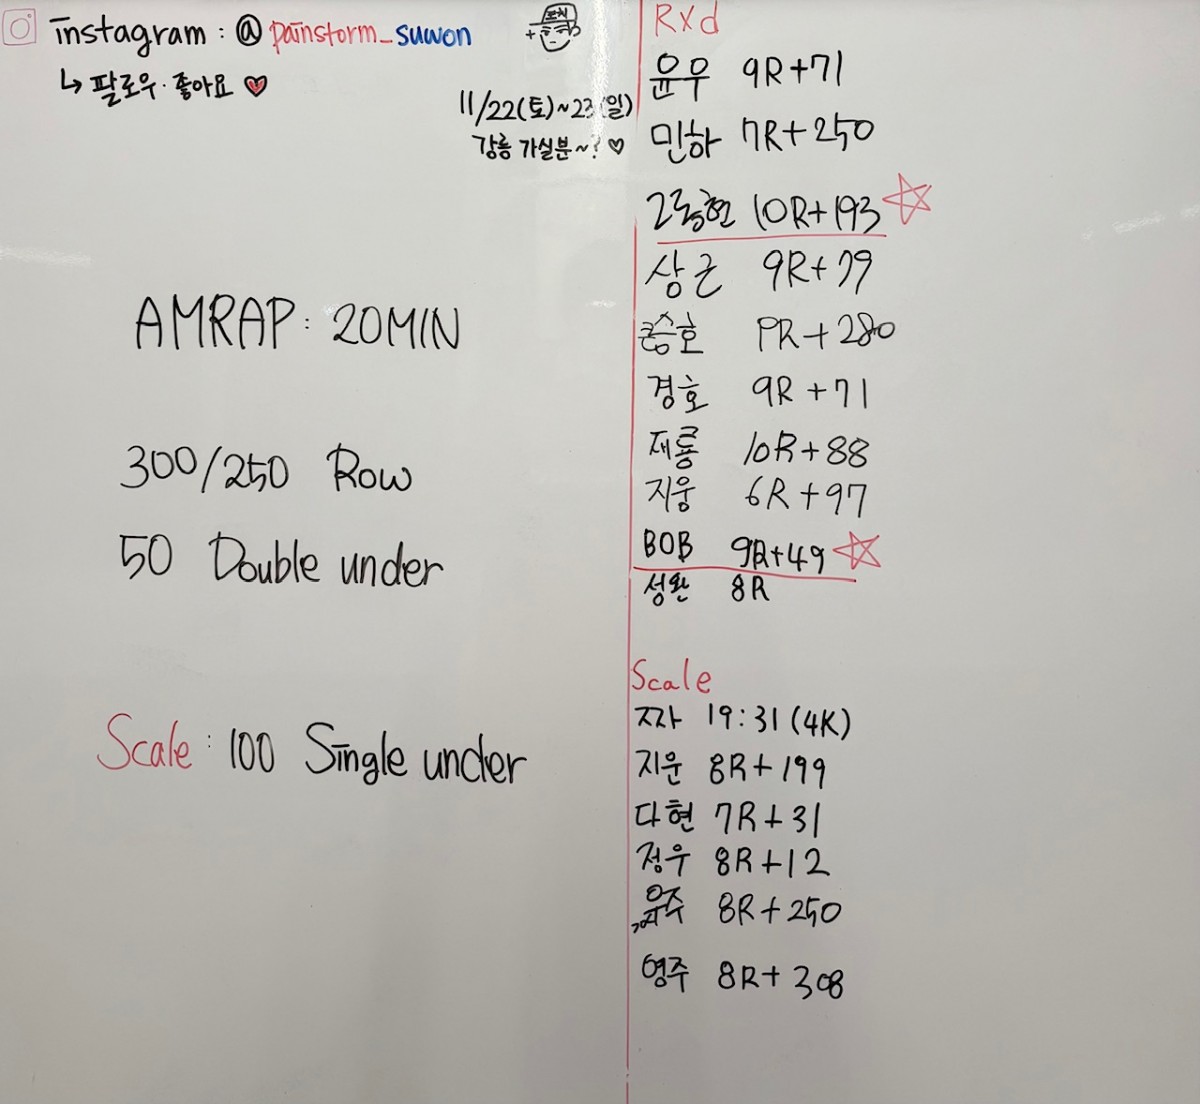 instagram : @ painstorm_suwon
↳ 팔로우·좋아요 ♥
코치
11/22(토)~23(일)
강릉 가실분~? ♡
AMRAP : 20MIN
300/250 Row
50 Double under
Scale : 100 Single under
Rxd
윤우 9R+71
민하 7R+250
10R+193 ☆
상근 9R+79
9R+280
경호 9R+71
재룡 10R+88
지웅 6R+97
BOB 9R+49 ☆
성완 8R
Scale
19:31 (4K)
지운 8R+199
다현 7R+31
정우 8R+12
8R+250
영주 8R+308